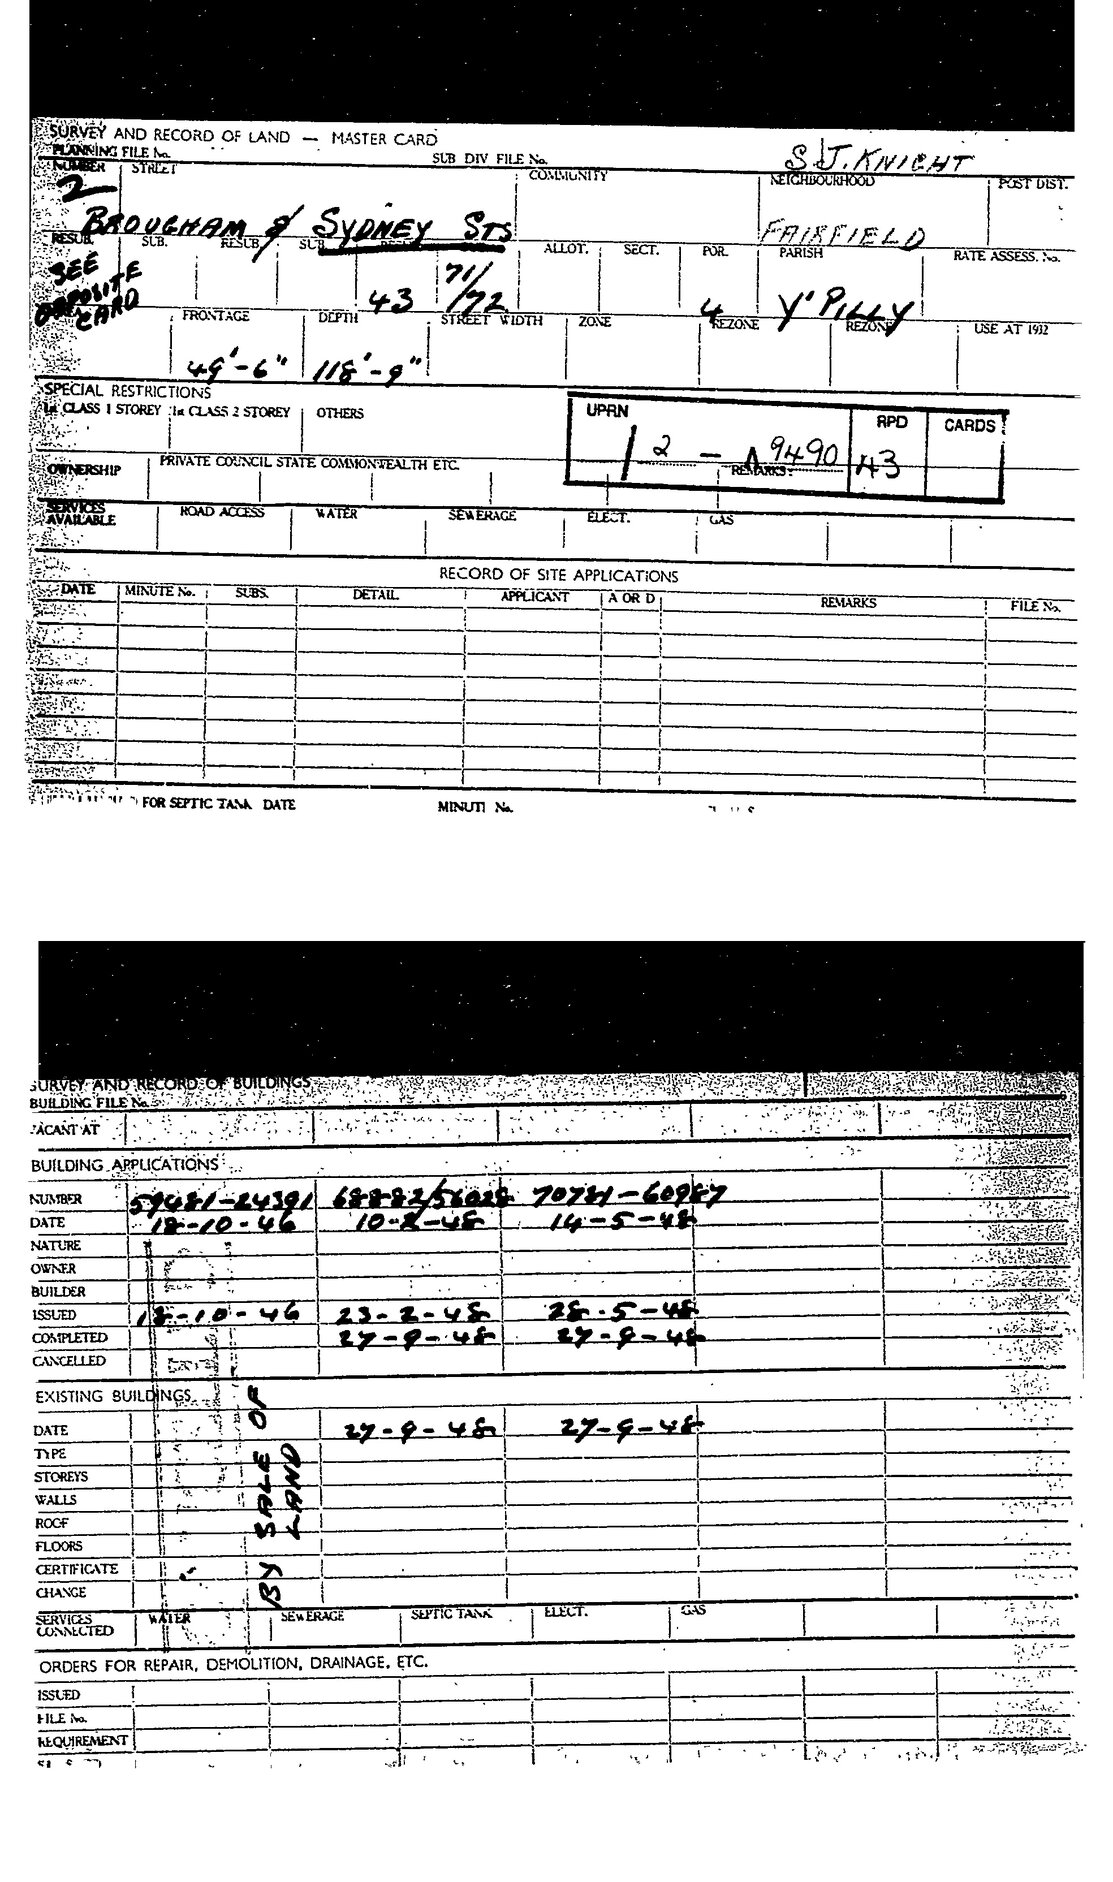 SURVEY AND RECORD OF LAND — MASTER CARD
PLANNING FILE No. SUB DIV FILE No. S J. KNIGHT
NUMBER STREET COMMUNITY NEIGHBOURHOOD POST DIST.
2
BROUGHAM & SYDNEY STS FAIRFIELD
RESUB. SUB. RESUB. SUB. ALLOT. SECT. POR. PARISH RATE ASSESS. No.
SEE OPPOSITE CARD 43 71/72 4 Y'PILLY
FRONTAGE DEPTH STREET WIDTH ZONE REZONE REZONE USE AT 1932
49'-6" 118'-9"
SPECIAL RESTRICTIONS
1st CLASS 1 STOREY 1st CLASS 2 STOREY OTHERS
UPRN RPD CARDS
1/2 — A9490 43
OWNERSHIP PRIVATE COUNCIL STATE COMMONWEALTH ETC. REMARKS:
SERVICES AVAILABLE ROAD ACCESS WATER SEWERAGE ELECT. GAS
RECORD OF SITE APPLICATIONS
DATE MINUTE No. SUBS. DETAIL APPLICANT A OR D REMARKS FILE No.
FOR SEPTIC TANK DATE MINUTE No.
SURVEY AND RECORD OF BUILDINGS
BUILDING FILE No.
VACANT AT
BUILDING APPLICATIONS
NUMBER 59481-24391 68882/56028 70781-60987
DATE 18-10-46 10-2-48 14-5-48
NATURE
OWNER
BUILDER
ISSUED 18-10-46 23-2-48 28-5-48
COMPLETED 27-9-48 27-9-48
CANCELLED
EXISTING BUILDINGS
DATE 27-9-48 27-9-48
TYPE
STOREYS
WALLS
ROOF
FLOORS
CERTIFICATE
CHANGE
BY SALE OF
LAND
SERVICES CONNECTED WATER SEWERAGE SEPTIC TANK ELECT. GAS
ORDERS FOR REPAIR, DEMOLITION, DRAINAGE, ETC.
ISSUED
FILE No.
REQUIREMENT